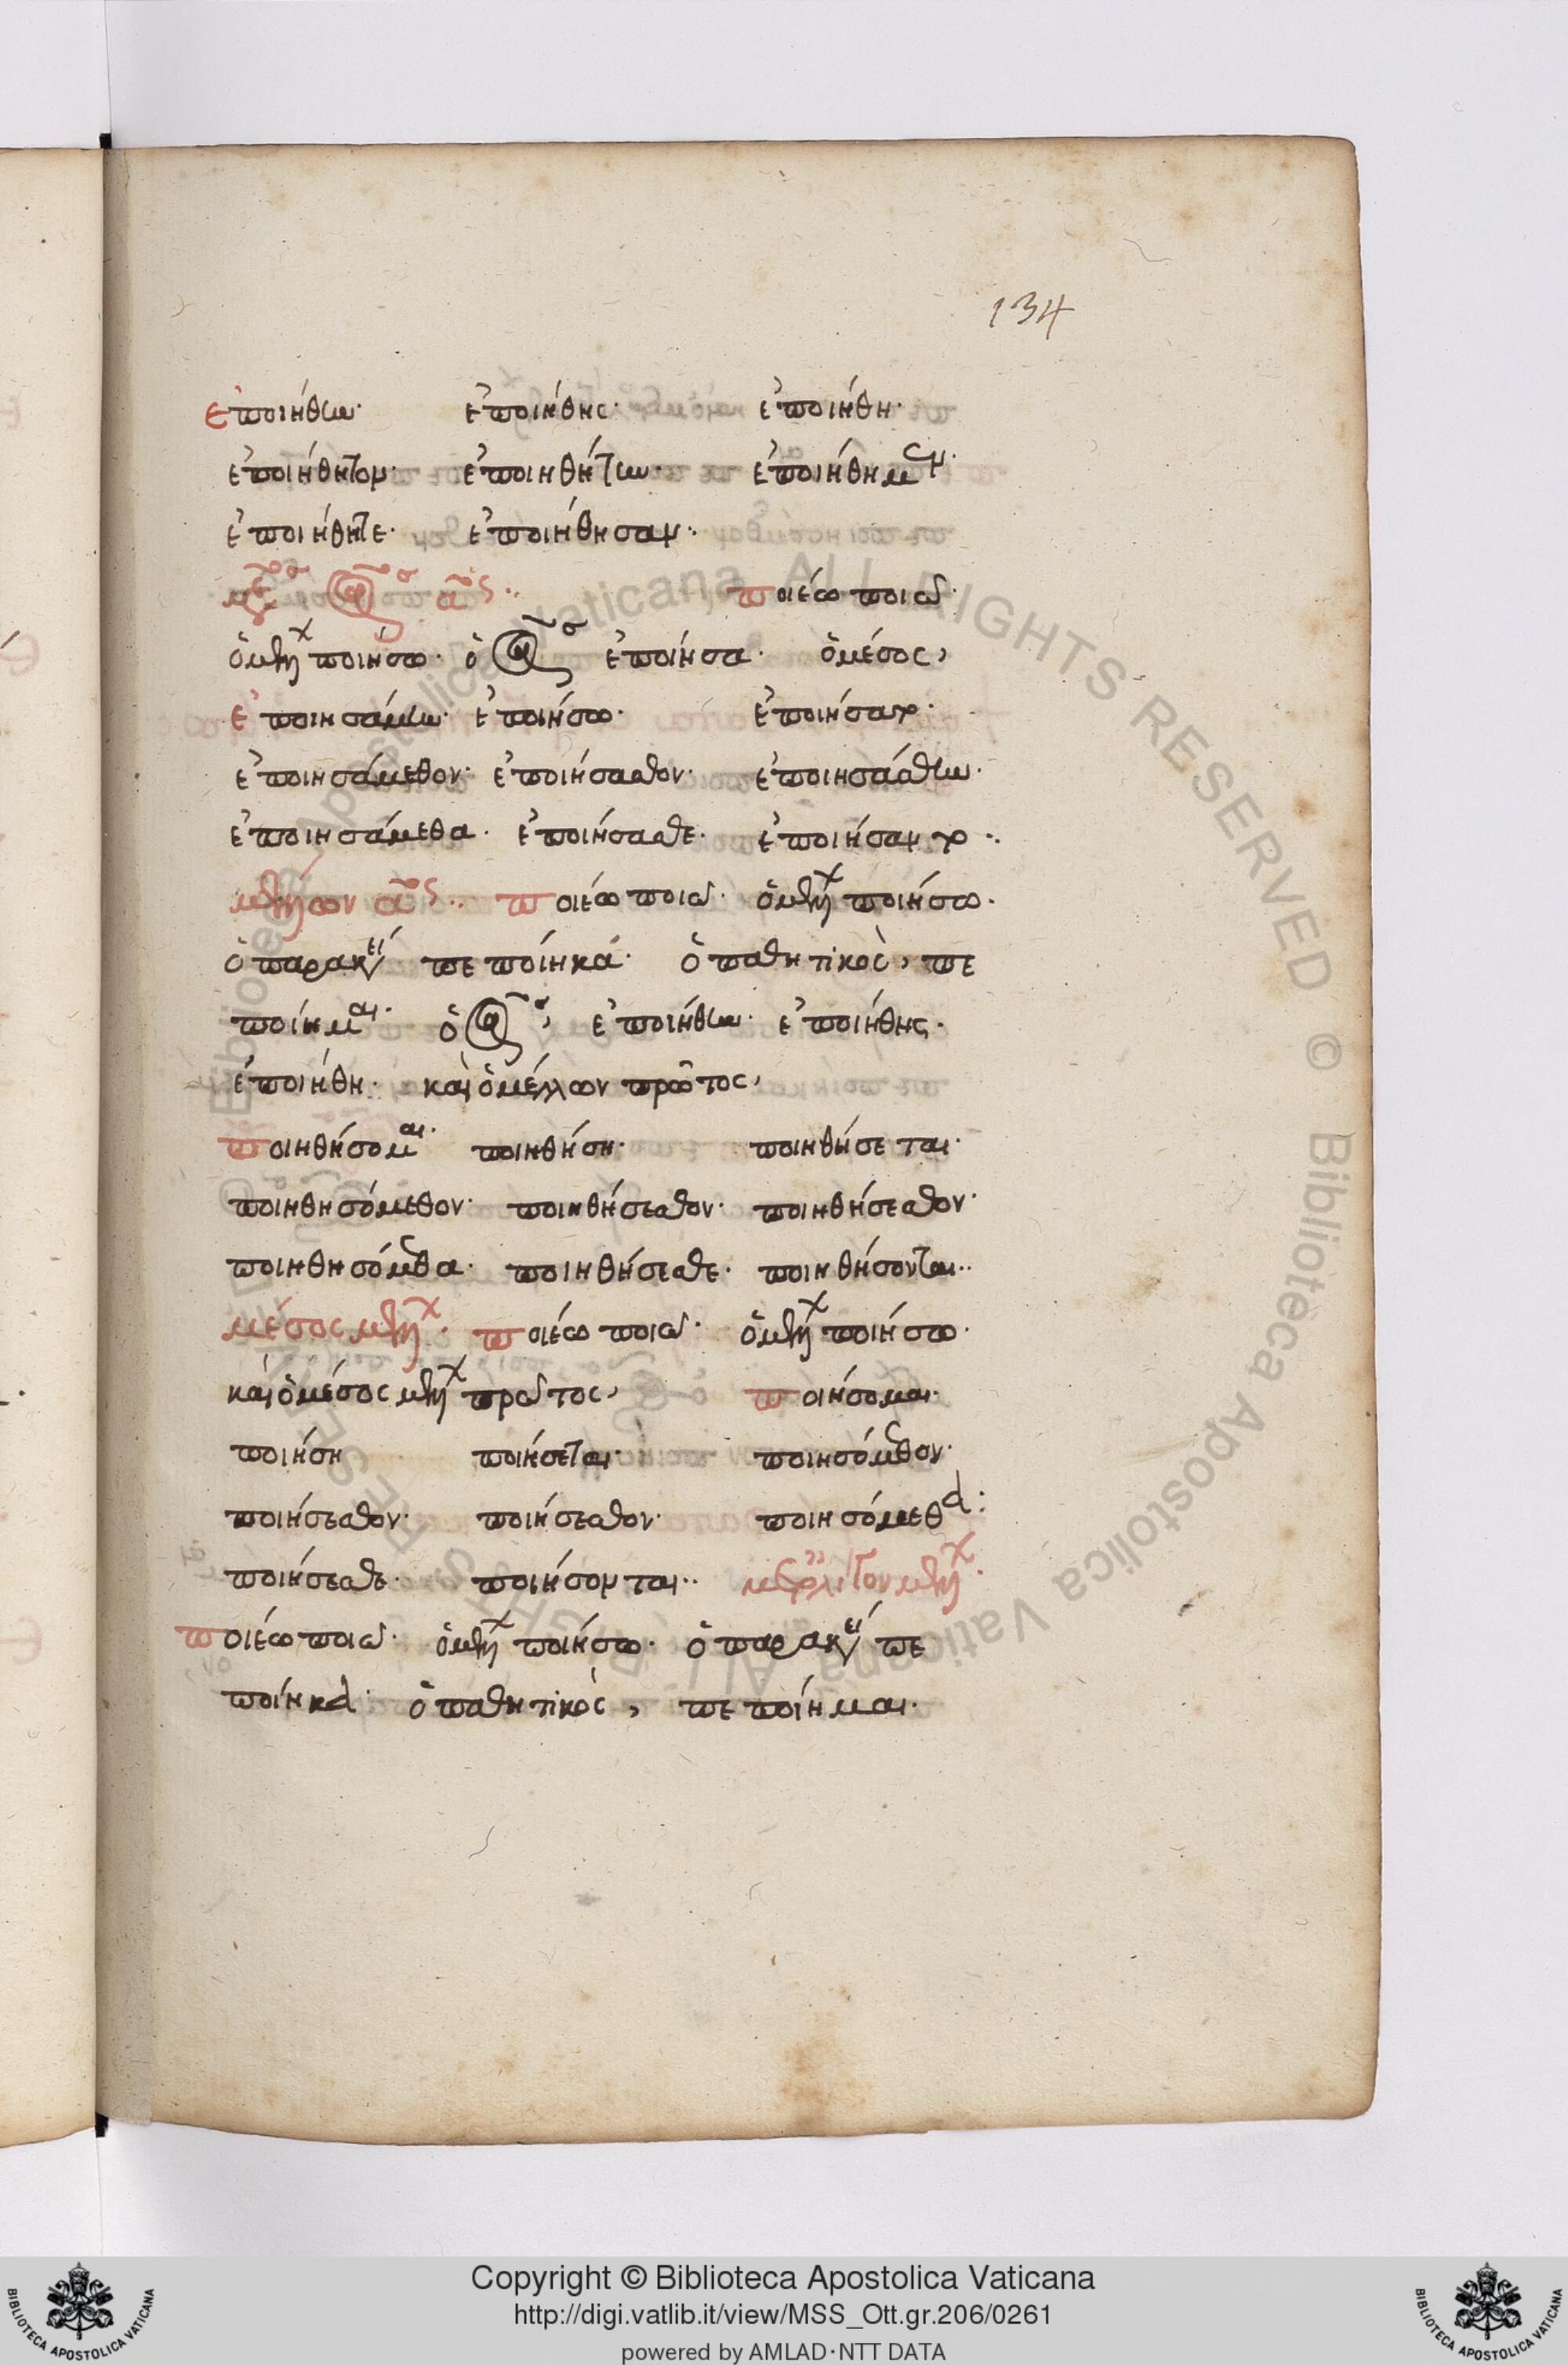 134
ἐποιήθην· ἐποιήθης· ἐποιήθη·
ἐποιήθητον· ἐποιηθήτην· ἐποιήθημεν·
ἐποιήθητε· ἐποιήθησαν·
ποιέω ποιῶ·
ὁ μέλλ ποιήσω· ὁ ἐποίησα· ὁ μέσος,
ἐποιησάμην· ἐποιήσω· ἐποιήσατο·
ἐποιησάμεθον· ἐποιήσασθον· ἐποιησάσθην·
ἐποιησάμεθα· ἐποιήσασθε· ἐποιήσαντο·
μέλλων ποιέω ποιῶ· ὁ μέλλ ποιήσω·
ὁ παρακεί πεποίηκα· ὁ παθητικὸς, πε
ποίημαι· ὁ ἐποιήθην· ἐποιήθης·
ἐποιήθη· καὶ ὁ μέλλων πρῶτος,
ποιηθήσομαι· ποιηθήσῃ· ποιηθήσεται·
ποιηθησόμεθον· ποιηθήσεσθον· ποιηθήσεσθον·
ποιηθησόμεθα· ποιηθήσεσθε· ποιηθήσονται··
μέσος μέλλ· ποιέω ποιῶ· ὁ μέλλ ποιήσω·
καὶ ὁ μέσος μέλλ πρῶτος, ποιήσομαι·
ποιήσῃ ποιήσεται· ποιησόμεθον·
ποιήσεσθον· ποιήσεσθον· ποιησόμεθα:
ποιήσεσθε· ποιήσονται·· μετ' ὀλίγον μέλλ·
ποιέω ποιῶ· ὁ μέλλ ποιήσω· ὁ παρακεί πε
ποίηκα· ὁ παθητικὸς, πεποίημαι·
© Biblioteca Apostolica Vaticana ALL RIGHTS RESERVED
Copyright © Biblioteca Apostolica Vaticana
http://digi.vatlib.it/view/MSS_Ott.gr.206/0261
powered by AMLAD·NTT DATA
BIBLIOTECA APOSTOLICA VATICANA
BIBLIOTECA APOSTOLICA VATICANA